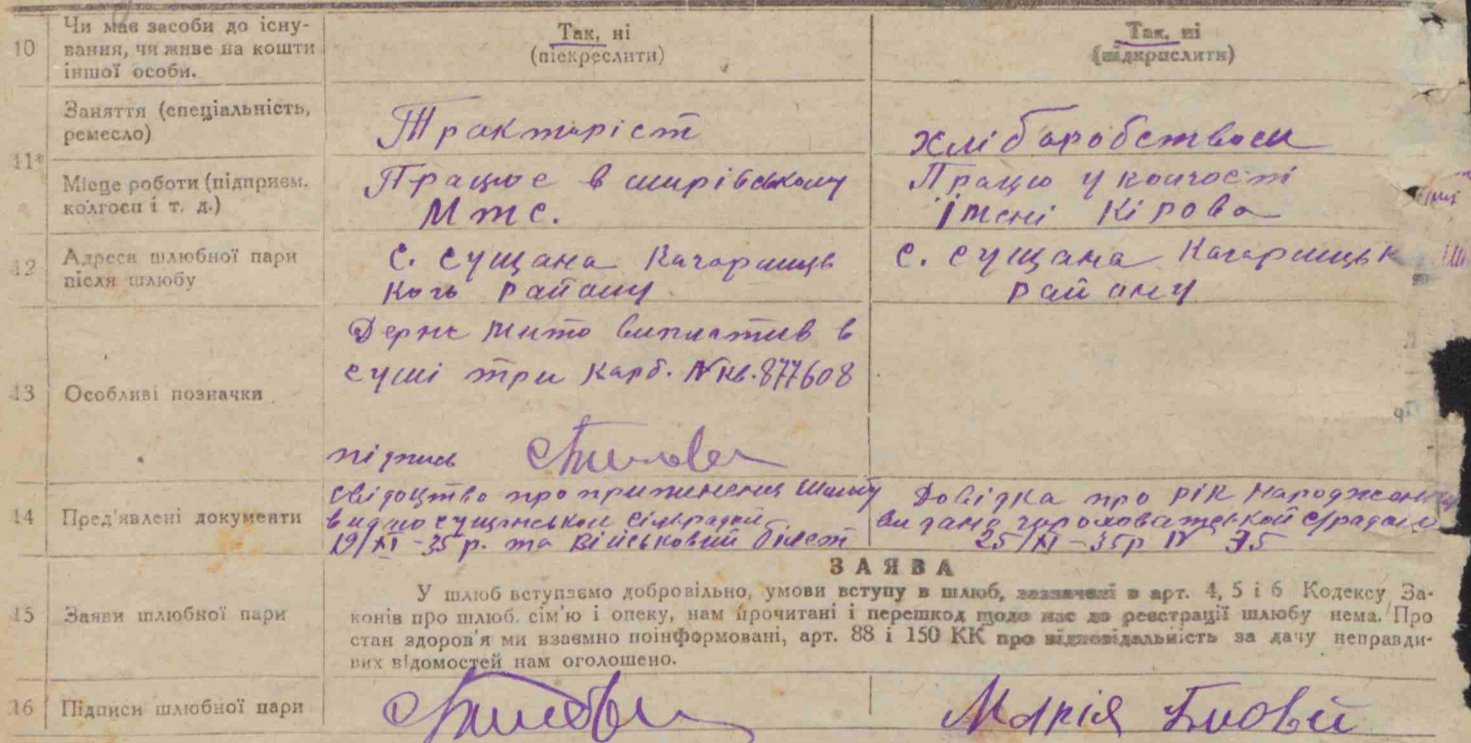 10 Чи має засоби до існу-
вання, чи живе на кошти
іншої особи.
Так, ні
(піекреслити)
Так, ні
(підкрислити)
11*
Заняття (спеціальність,
ремесло)
Трактаріст
Хліборобством
Місце роботи (підприєм.
колгосп і т. д.)
Працює в ширівському
Мтс.
Працю у колгості
імені Кірова
12 Адреса шлюбної пари
після шлюбу
С. Сущана Кагарлицьк
кого району
С. Сущана Кагарлицьк
району
13 Особливі позначки
Держ мито виплатив в
суші три карб. № кв. 877608
підпись
14 Пред'явлені документи
свідоцтво про припинення шлюбу
видано сущанською сільрадой
19/XI-35 р. та військовий білет
Довідка про рік народження
видана
25/XI-35р № 75
15 Заяви шлюбної пари
ЗАЯВА
У шлюб вступаємо добровільно, умови вступу в шлюб, зазначені в арт. 4, 5 і 6 Кодексу За-
конів про шлюб. сім'ю і опеку, нам прочитані і перешкод щодо нас до реєстрації шлюбу нема. Про
стан здоров'я ми взаємно поінформовані, арт. 88 і 150 КК про відповідальність за дачу неправди-
вих відомостей нам оголошено.
16 Підписи шлюбної пари
Марія